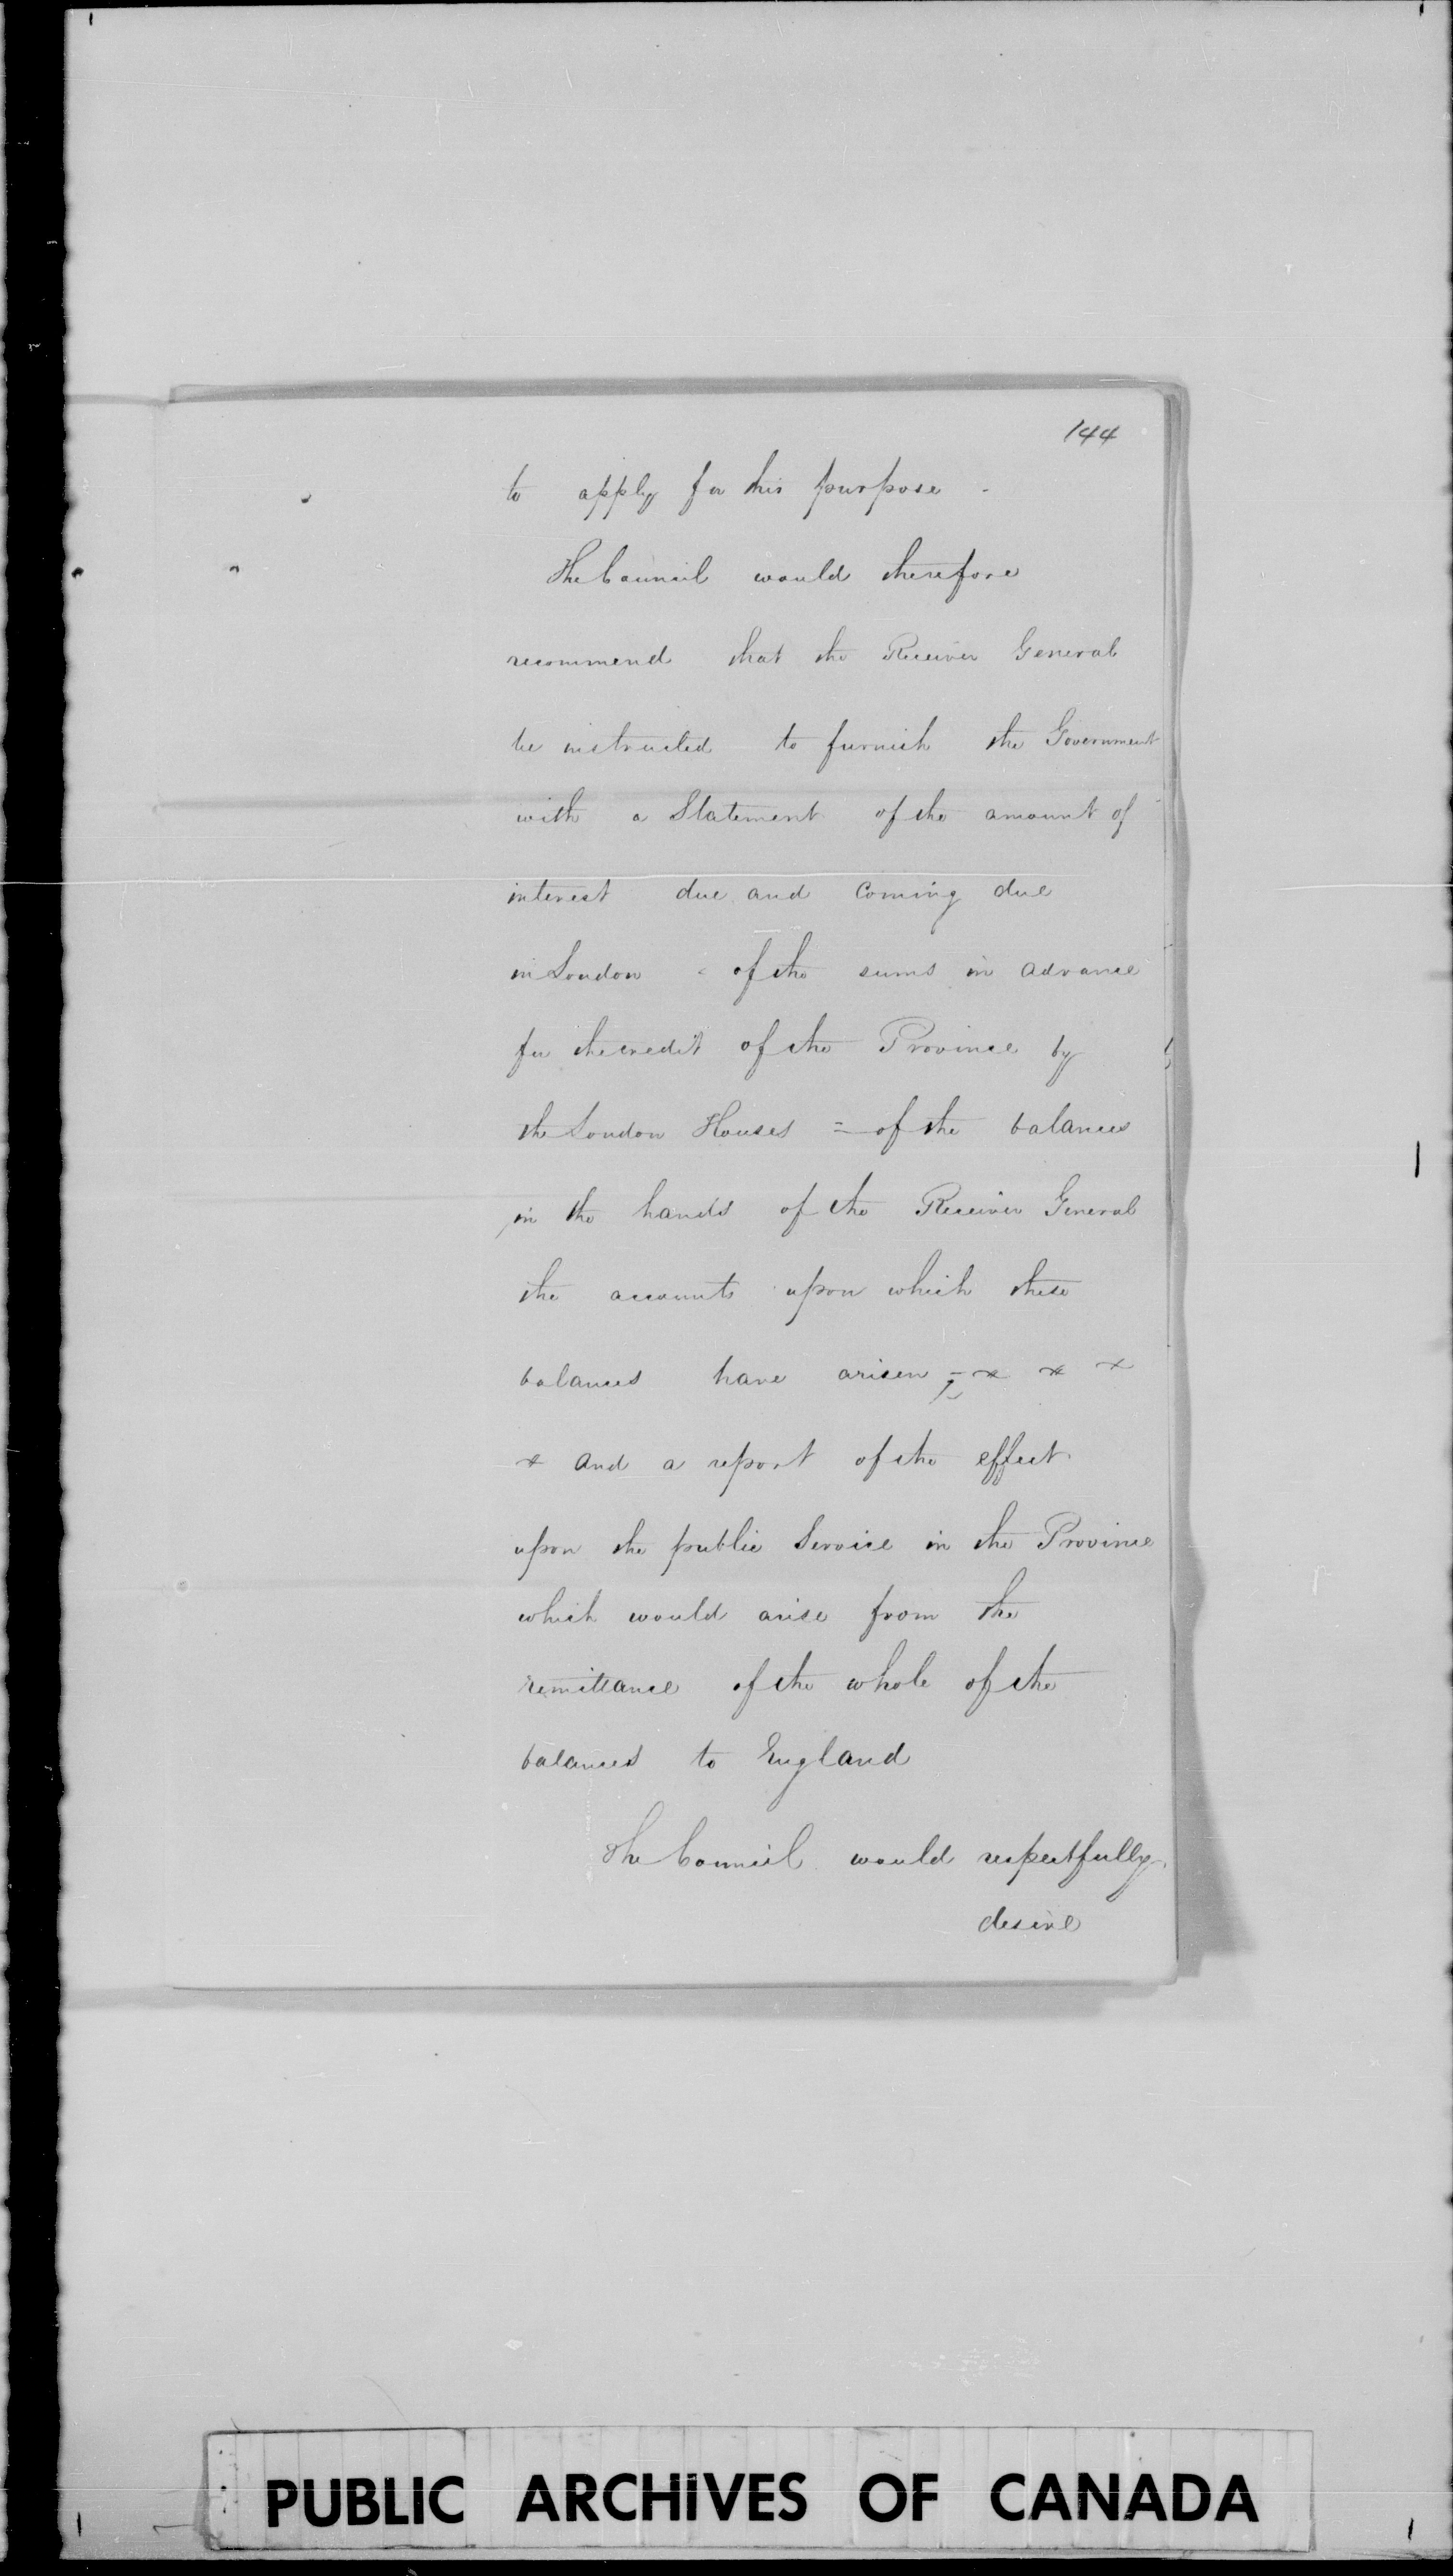 144
to apply for this purpose -
The Council would therefore
recommend that the Receiver General
be instructed to furnish the Government
with a Statement of the amount of
interest due and coming due
in London - of the sums in advance
for the credit of the Province by
the London Houses = of the balances
in the hands of the Receiver General
the accounts upon which these
balances have arisen - x x x
x and a report of the effect
upon the public Service in the Province
which would arise from the
remittance of the whole of the
balances to England
The Council would respectfully
desire
PUBLIC ARCHIVES OF CANADA